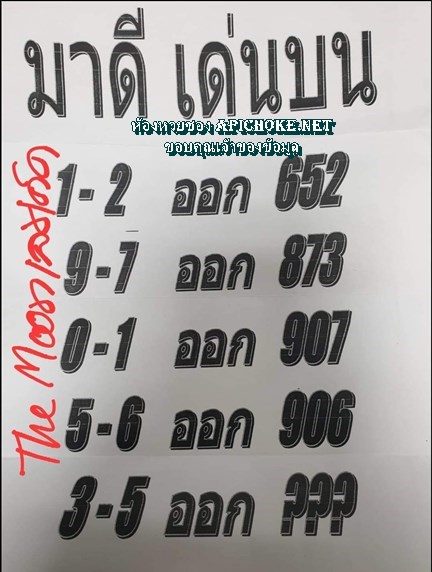 มาดี เด่นบน
ห้องหวยซอง APICHOKE.NET
ขอบคุณเจ้าของข้อมูล
1-2 ออก 652
9-7 ออก 873
0-1 ออก 907
5-6 ออก 906
3-5 ออก ???
The Moon